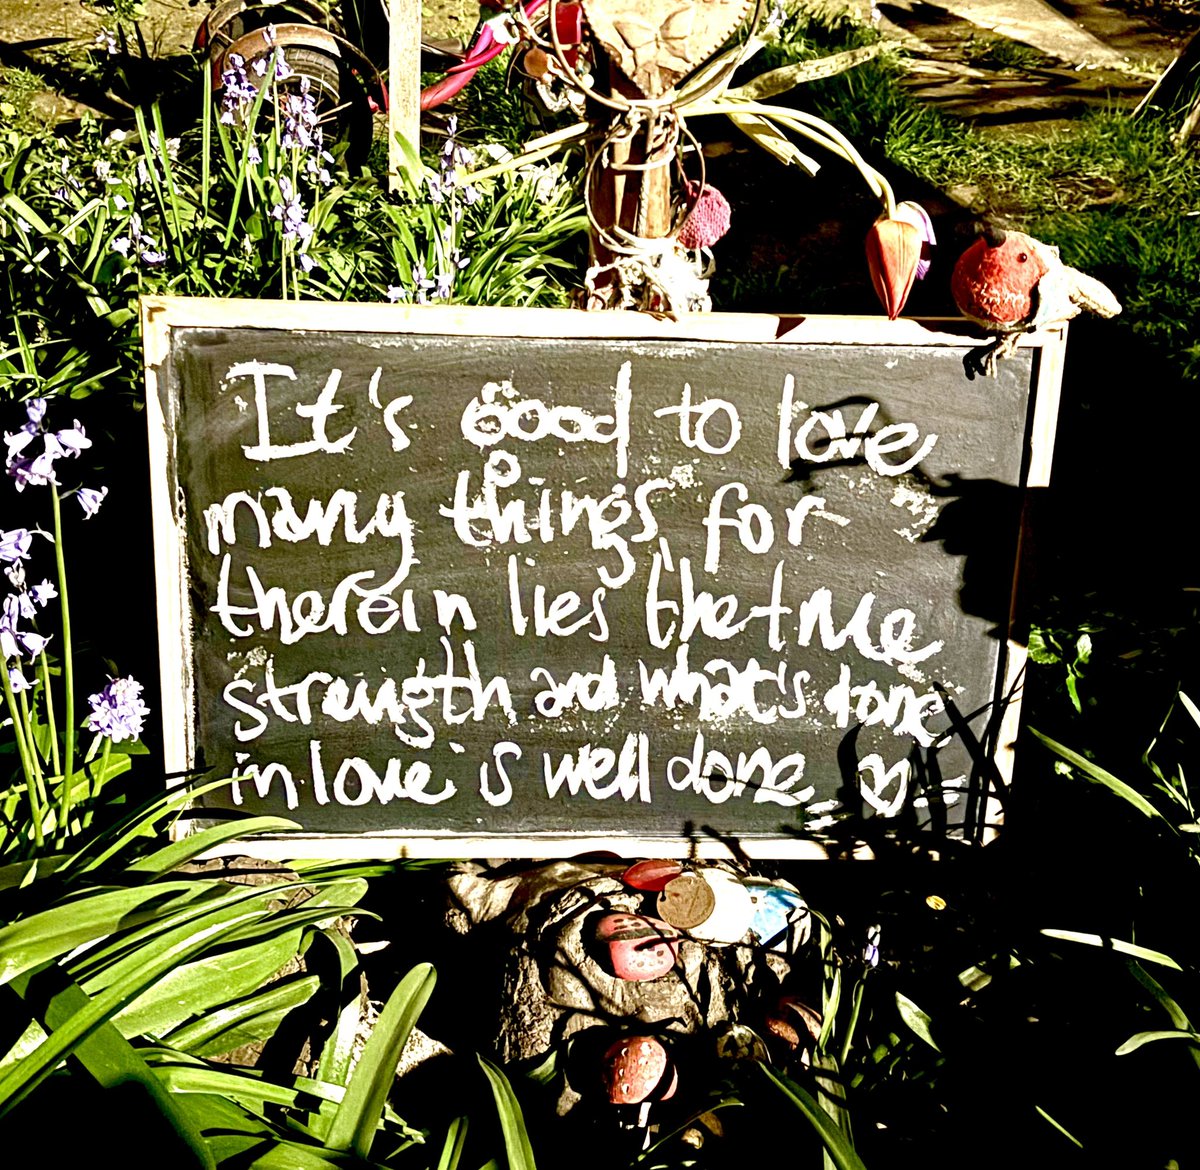 It's good to love
many things for
therein lies the true
strength and what's done
in love is well done. ♡